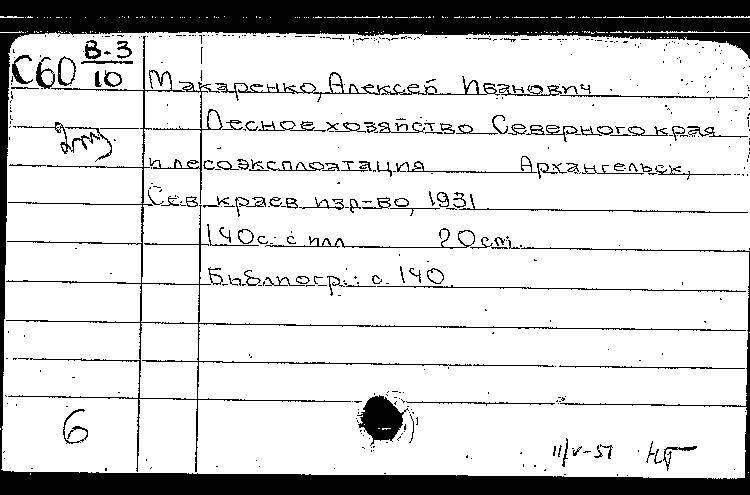 С60 В-3/10
Макаренко, Алексей Иванович
Лесное хозяйство Северного края
и лесоэксплоатация Архангельск,
Сев. краев. изд-во, 1931.
140с. с илл. 20см.
Библиогр.: с. 140.
6
11/V-51 НГ